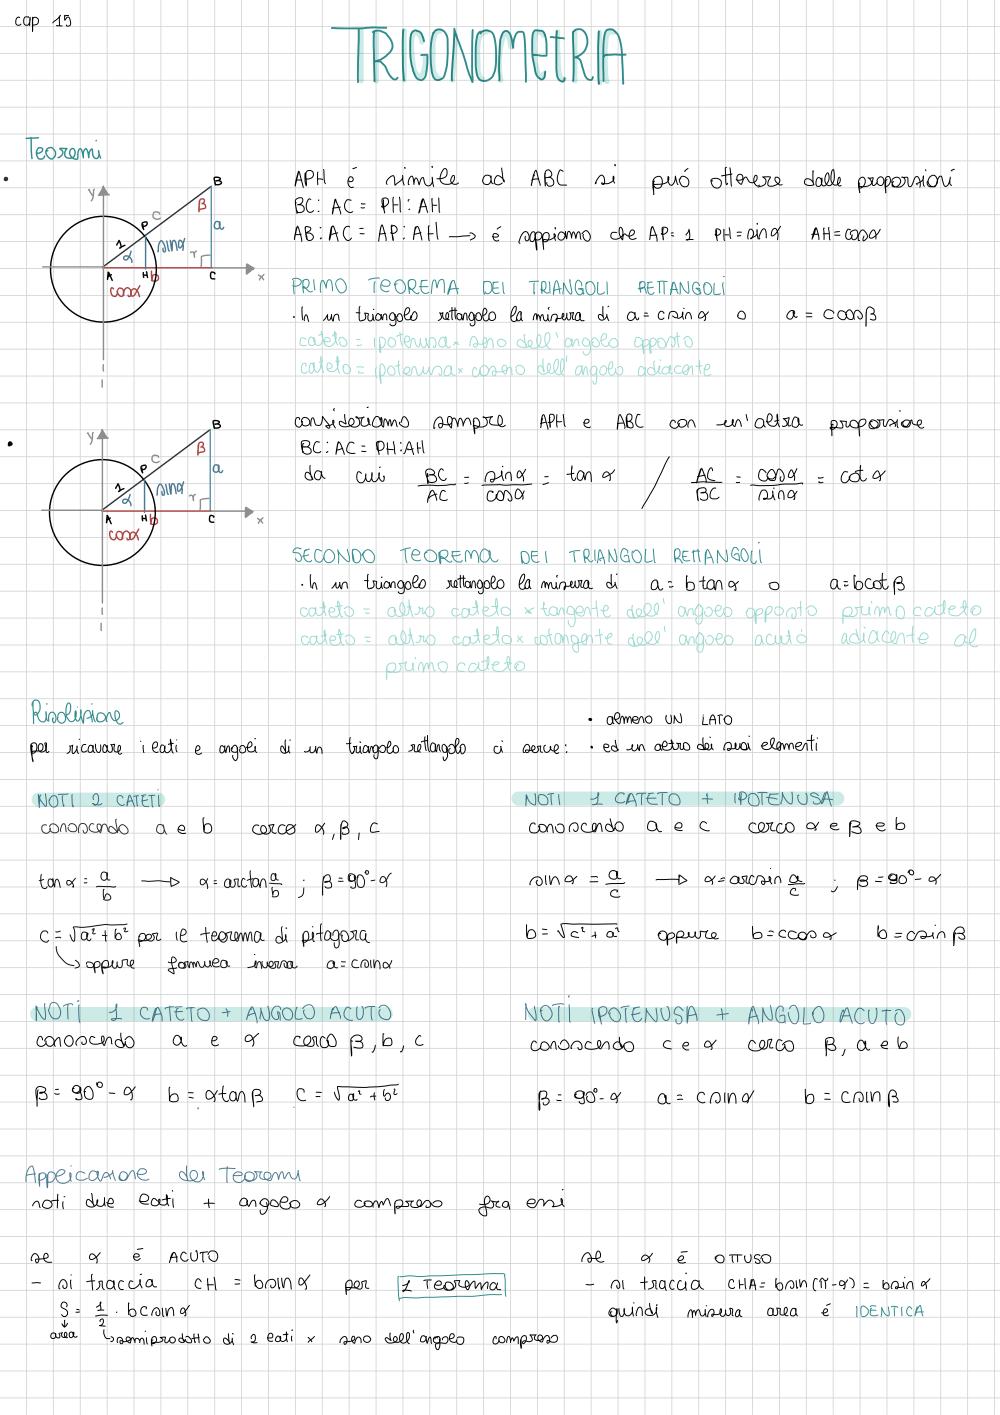 cap 15
TRIGONOMETRIA
Teoremi
y B
β
c
P a
1 sinα
α
A H b C x
cosα
APH é simile ad ABC si puó ottenere dalle proporzioni
BC: AC = PH: AH
AB: AC = AP: AH → é sappiamo che AP= 1 PH = sinα AH = cosα
PRIMO TEOREMA DEI TRIANGOLI RETTANGOLI
· In un triangolo rettangolo la misura di a= csinα o a = ccosβ
cateto = ipotenusa × seno dell'angolo opposto
cateto = ipotenusa × coseno dell'angolo adiacente
y B
β
c
P a
1 sinα
α
A H b C x
cosα
consideriamo sempre APH e ABC con un'altra proporzione
BC: AC= PH:AH
da cui BC/AC = sinα/cosα = tan α / AC/BC = cosα/sinα = cot α
SECONDO TEOREMA DEI TRIANGOLI RETTANGOLI
· In un triangolo rettangolo la misura di a= b tanα o a=bcotβ
cateto = altro cateto × tangente dell' angolo opposto primo cateto
cateto = altro cateto × cotangente dell' angolo acuto adiacente al
primo cateto
Risoluzione
• almeno UN LATO
per ricavare i lati e angoli di un triangolo rettangolo ci serve: • ed un altro dei suoi elementi
NOTI 2 CATETI
conoscendo a e b cerco α, β, c
tanα = a/b → α= arctan a/b ; β= 90°-α
c = √a² + b² per il teorema di pitagora
↳ oppure formula inversa a= csinα
NOTI 1 CATETO + IPOTENUSA
conoscendo a e c cerco α e β e b
sinα = a/c → α=arcsin a/c ; β= 90°- α
b= √c² + a² oppure b=ccosα b=csinβ
NOTI 1 CATETO + ANGOLO ACUTO
conoscendo a e α cerco β, b, c
β= 90° - α b= αtanβ c = √a² + b²
NOTI IPOTENUSA + ANGOLO ACUTO
conoscendo c e α cerco β, a e b
β= 90°- α a= csinα b= csinβ
Applicazione dei Teoremi
noti due lati + angolo α compreso fra essi
se α é ACUTO
- si traccia CH = bsinα per 1 Teorema
S= 1/2 · bcsinα
↓
area ↳ semiprodotto di 2 lati × seno dell'angolo compreso
se α é OTTUSO
- si traccia CHA= bsin(π-α) = bsinα
quindi misura area é IDENTICA